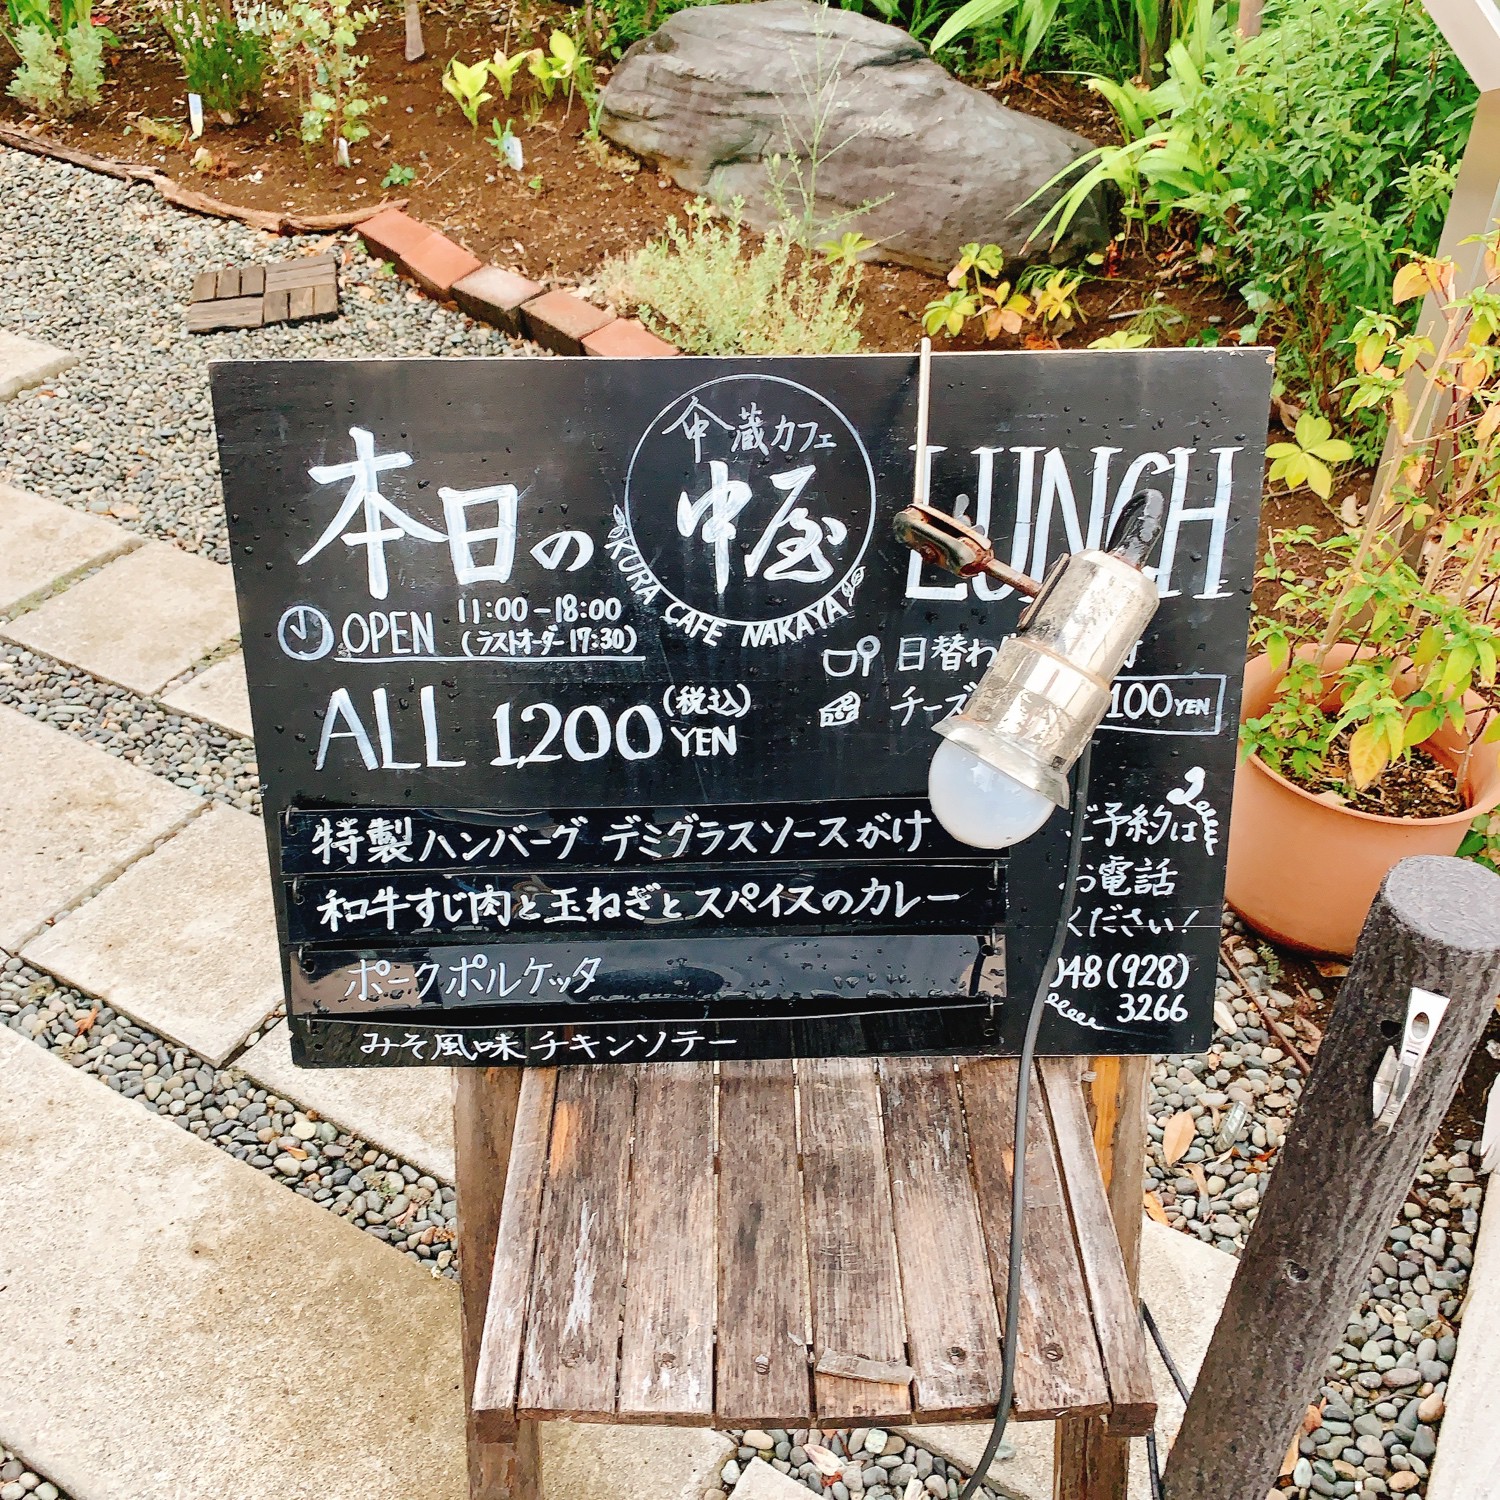 本日の
蔵カフェ
中屋
KURA CAFE NAKAYA
LUNCH
OPEN 11:00-18:00
(ラストオーダー17:30)
ALL 1,200 YEN (税込)
日替わ
チーズ
100 YEN
特製ハンバーグ デミグラスソースがけ
和牛すじ肉と玉ねぎとスパイスのカレー
ポークポルケッタ
みそ風味チキンソテー
ご予約は
お電話
ください!
048(928)
3266